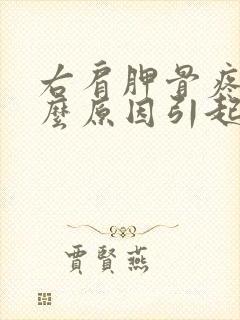 右肩胛骨疼
麼原因引起
賈賢燕